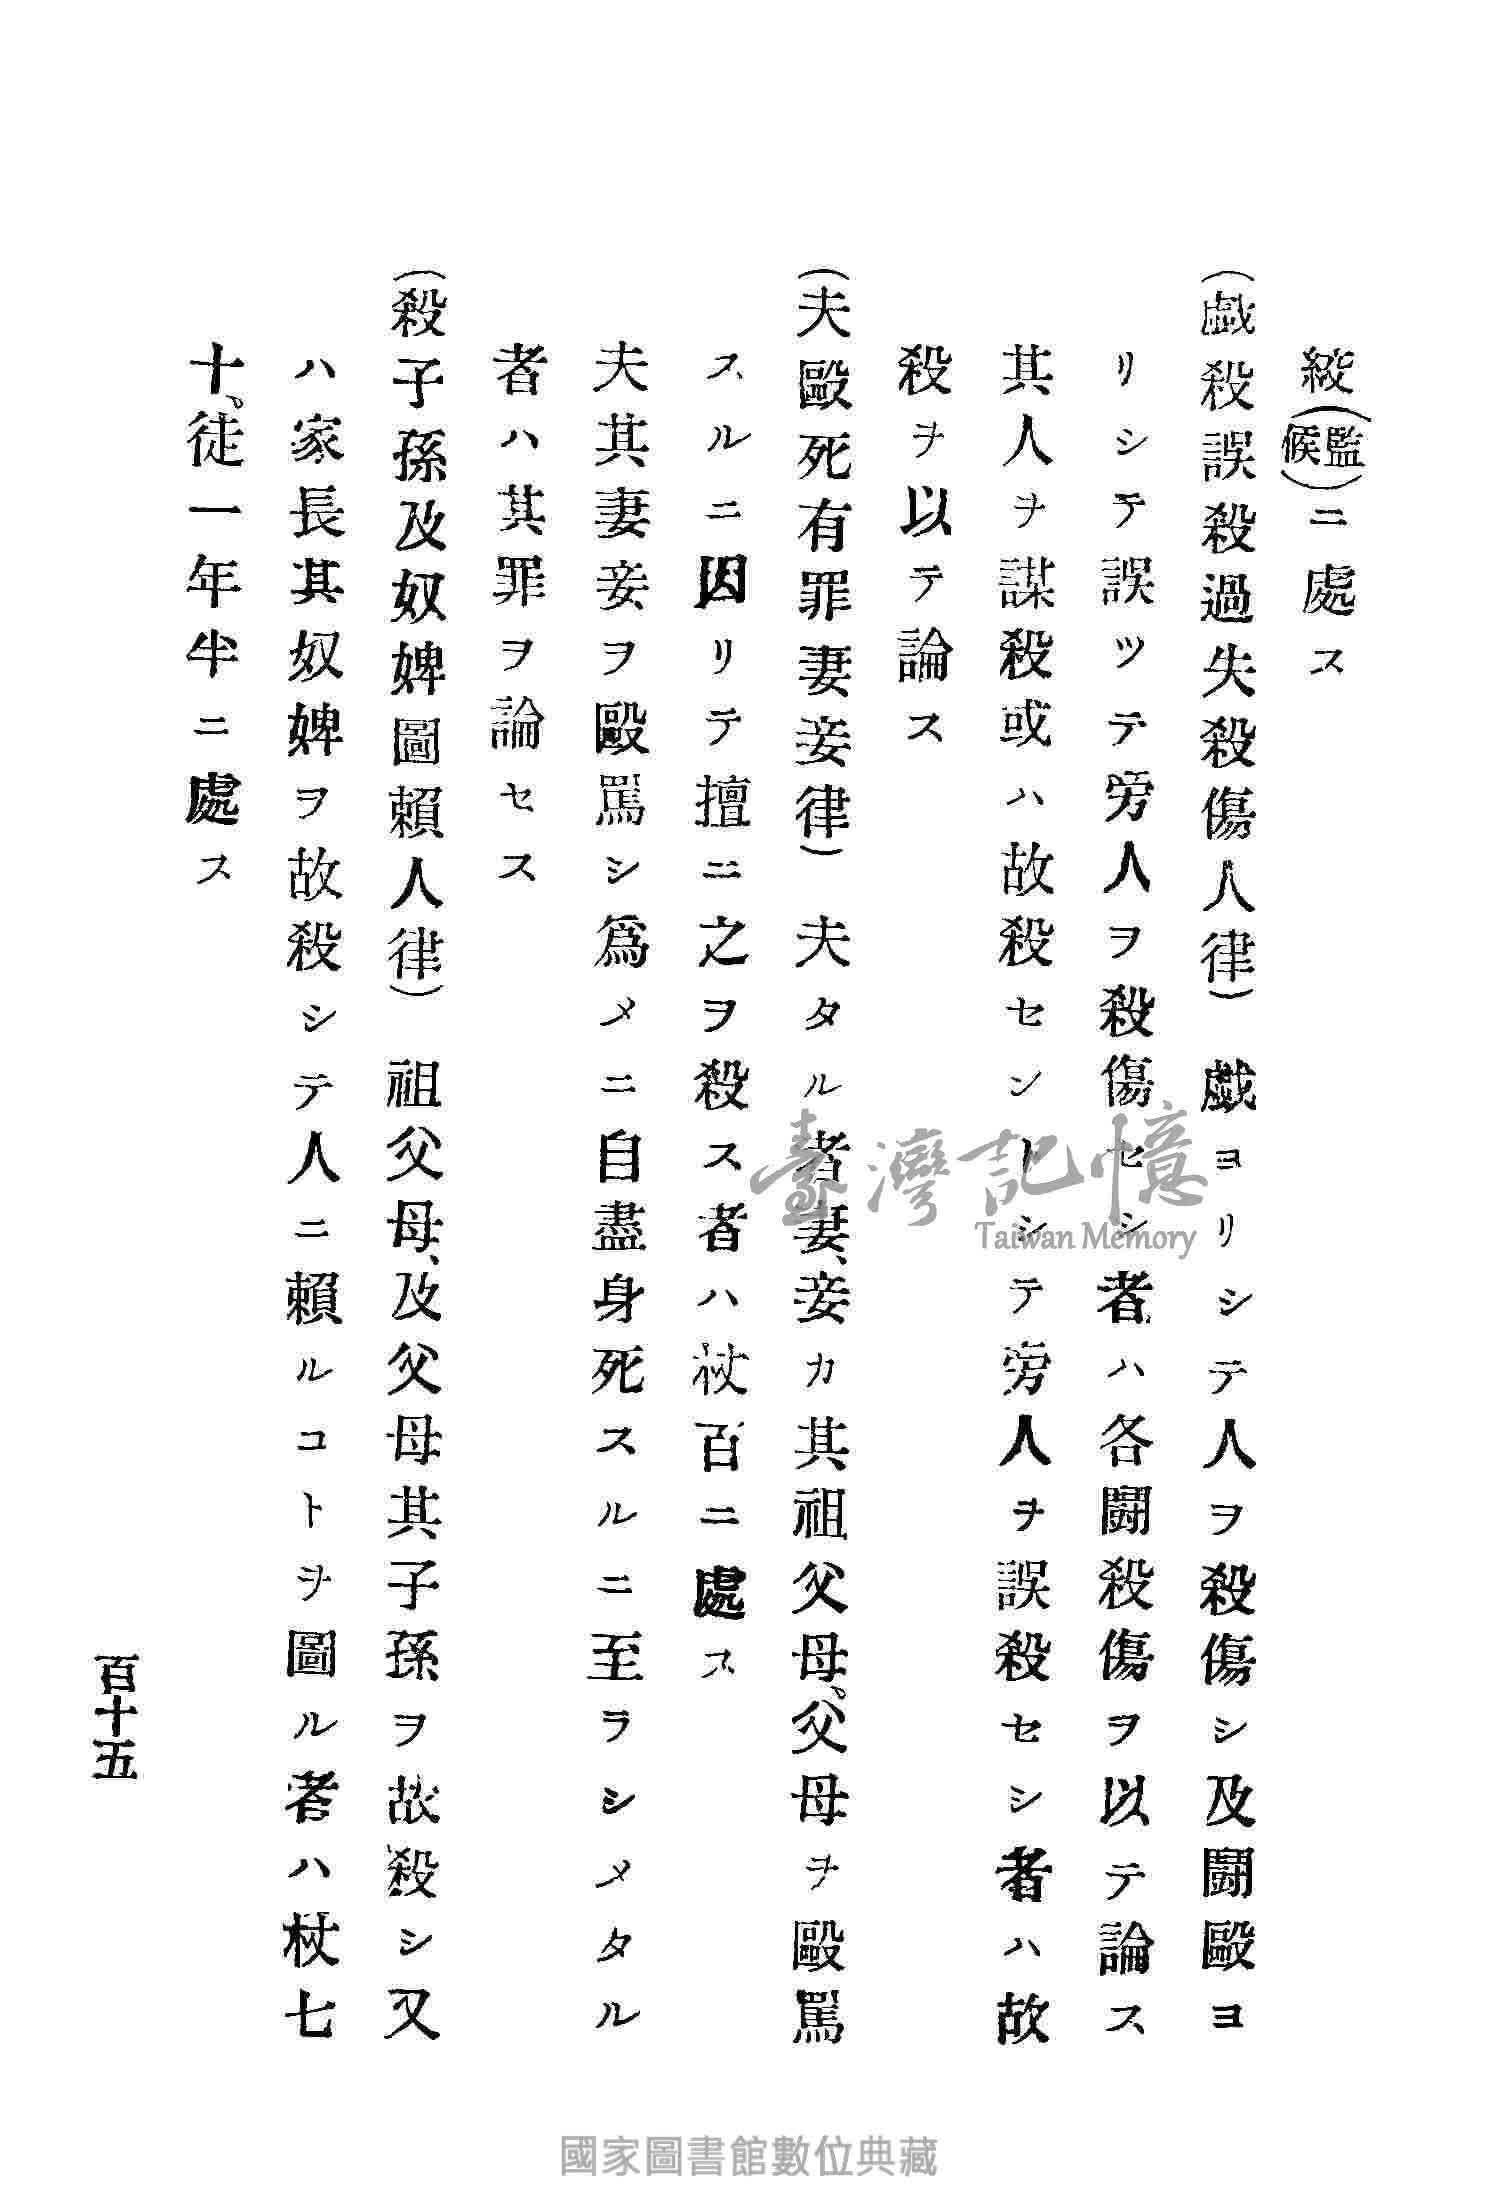 絞(監候)ニ處ス
(戯殺誤殺過失殺傷人律) 戯ヨリシテ人ヲ殺傷シ及鬪毆ヨ
リシテ誤ツテ旁人ヲ殺傷セシ者ハ各鬪殺傷ヲ以テ論ス
其人ヲ謀殺或ハ故殺セントシテ旁人ヲ誤殺セシ者ハ故
殺ヲ以テ論ス
(夫毆死有罪妻妾律) 夫タル者妻、妾カ其祖父母、父母ヲ毆罵
スルニ因リテ擅ニ之ヲ殺ス者ハ杖百ニ處ス
夫其妻妾ヲ毆罵シ爲メニ自盡身死スルニ至ラシメタル
者ハ其罪ヲ論セス
(殺子孫及奴婢圖賴人律) 祖父母、及父母其子孫ヲ故殺シ又
ハ家長其奴婢ヲ故殺シテ人ニ賴ルコトヲ圖ル者ハ杖七
十、徒一年半ニ處ス
百十五
臺灣記憶
Taiwan Memory
國家圖書館數位典藏